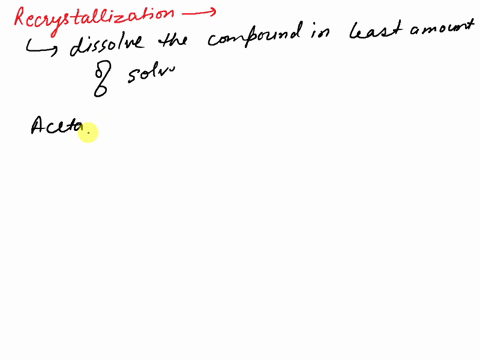 Recrystallization →
↳ dissolve the compound in least amount
of solv
Aceta